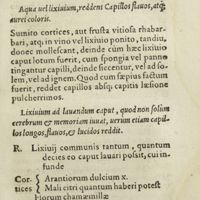 Aqua uel lixiuium, reddens Capillos flauos, atq;
aurei coloris.
Sumito cortices, aut frusta vitiosa rhabar-
bari, atq; in vino vel lixiuio ponito, tandiu,
donec mollescant, deinde cum hæc lixiuio
caput lotum fuerit, cum spongia vel panno
tingantur capilli, deinde siccentur, vel ad so-
lem, vel ad ignem. Quod cum sæpius factum
fuerit, reddet capillos absq; capitis læsione
pulcherrimos.
Lixiuium ad lauandum caput, quod non solùm
cerebrum & memoriam iuuat, uerum etiam capil-
los longos, flauos, & lucidos reddit.
R. Lixiuij communis tantum, quantum
decies eo caput lauari possit, cui in-
funde
Cor- { Arantiorum dulcium x.
tices { Mali citri quantum haberi potest
Florum chamæmillæ